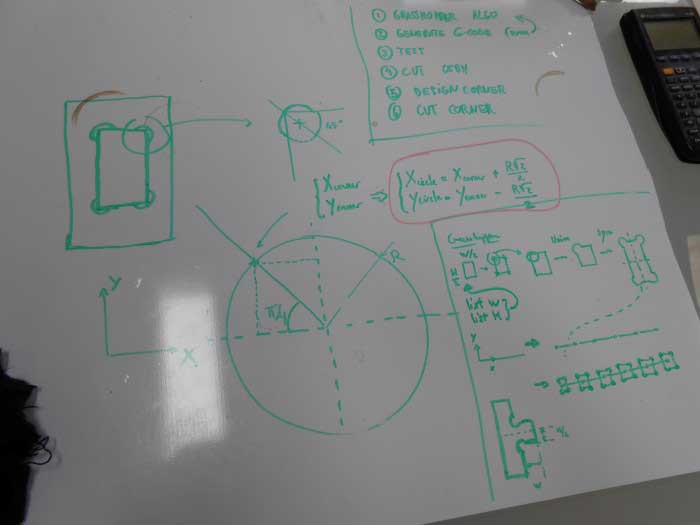 ① GRASSHOPPER ALGO
② GENERATE G-CODE
③ TEST
④ CUT
⑤ DESIGN CORNER
⑥ CUT CORNER
45°
{ Xcorner
Ycorner
⇒ { Xcircle = Xcorner + R√2/2
Ycircle = Ycorner - R√2/2
Y
X
π/4
R
Grasshopper
W/2
H/2
list W
list H
Y
x
W